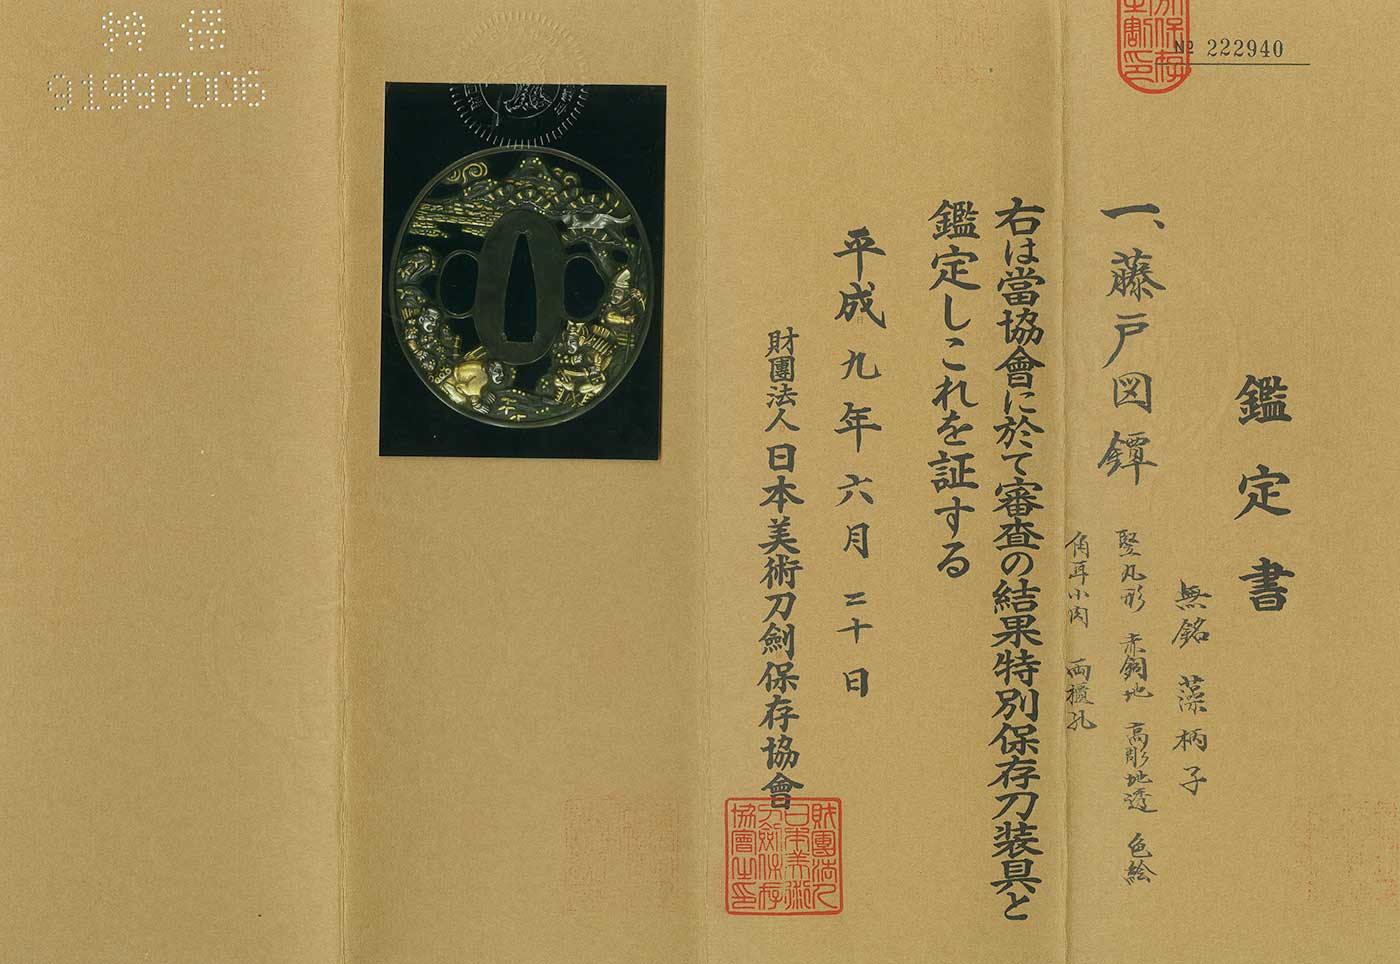 № 222940
鑑定書
一、藤戸図鐔
無銘 藻柄子
竪丸形 赤銅地 高彫地透 色絵
角耳小肉 両櫃孔
右は當協會に於て審査の結果特別保存刀装具と
鑑定しこれを証する
平成九年六月二十日
財團法人日本美術刀劍保存協會
財團法人
日本美術
刀劍保存
協會之印
91997006